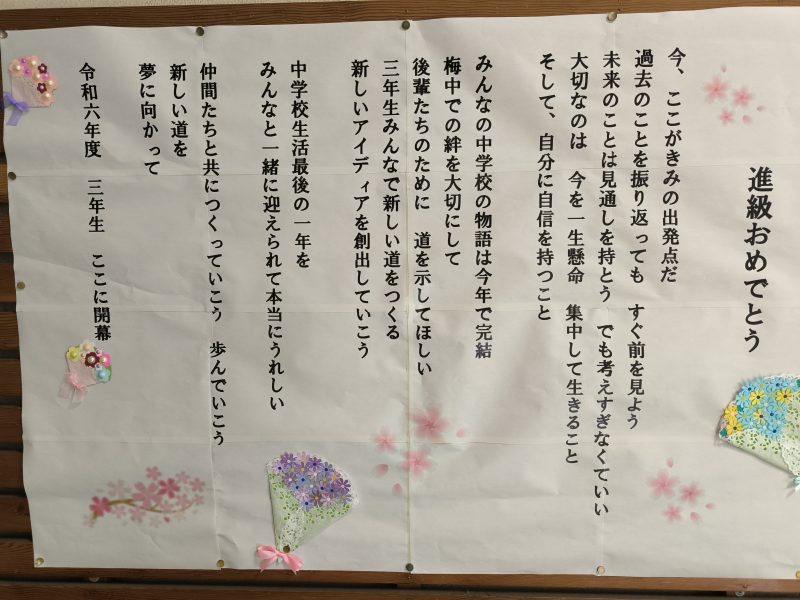 進級おめでとう
今、ここがきみの出発点だ
過去のことを振り返っても　すぐ前を見よう
未来のことは見通しを持とう　でも考えすぎなくていい
大切なのは　今を一生懸命　集中して生きること
そして、自分に自信を持つこと
みんなの中学校の物語は今年で完結
梅中での絆を大切にして
後輩たちのために　道を示してほしい
三年生みんなで新しい道をつくる
新しいアイディアを創出していこう
中学校生活最後の一年を
みんなと一緒に迎えられて本当にうれしい
仲間たちと共につくっていこう　歩んでいこう
新しい道を
夢に向かって
令和六年度　三年生　ここに開幕